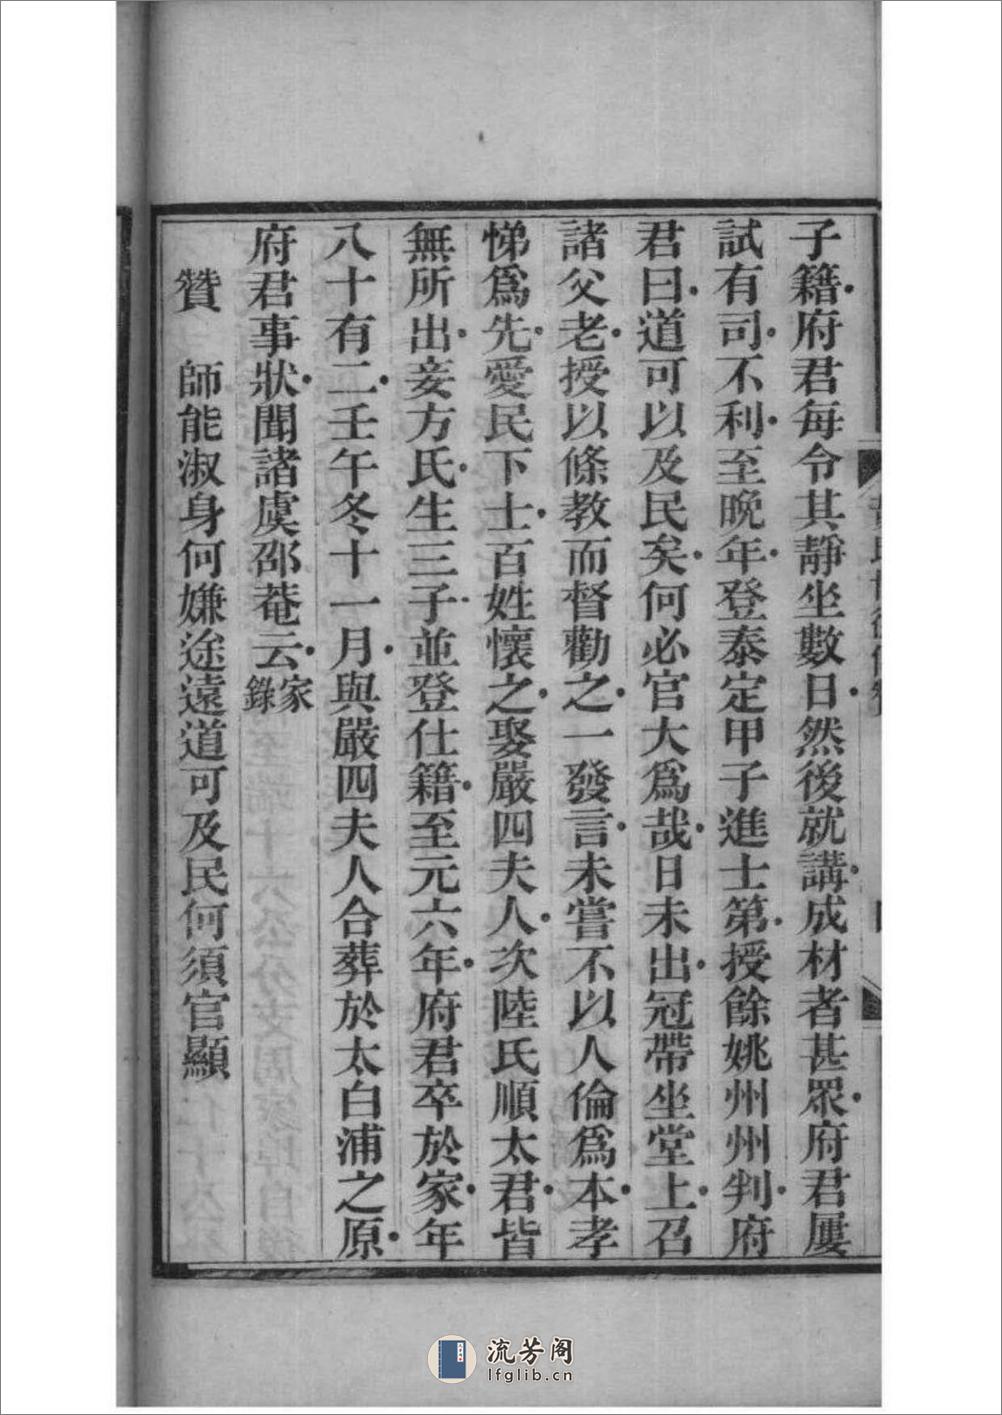 子籍府君每令其靜坐數日然後就講成材者甚眾府君屢
試有司不利至晚年登泰定甲子進士第授餘姚州州判府
君曰道可以及民矣何必官大爲哉日未出冠帶坐堂上召
諸父老授以條教而督勸之一發言未嘗不以人倫爲本孝
悌爲先愛民下士百姓懷之娶嚴四夫人次陸氏順太君皆
無所出妾方氏生三子並登仕籍至元六年府君卒於家年
八十有二壬午冬十一月與嚴四夫人合葬於太白浦之原
府君事狀聞諸虞邵菴云家錄
贊 師能淑身何嫌途遠道可及民何須官顯
流芳阁
lfglib.cn